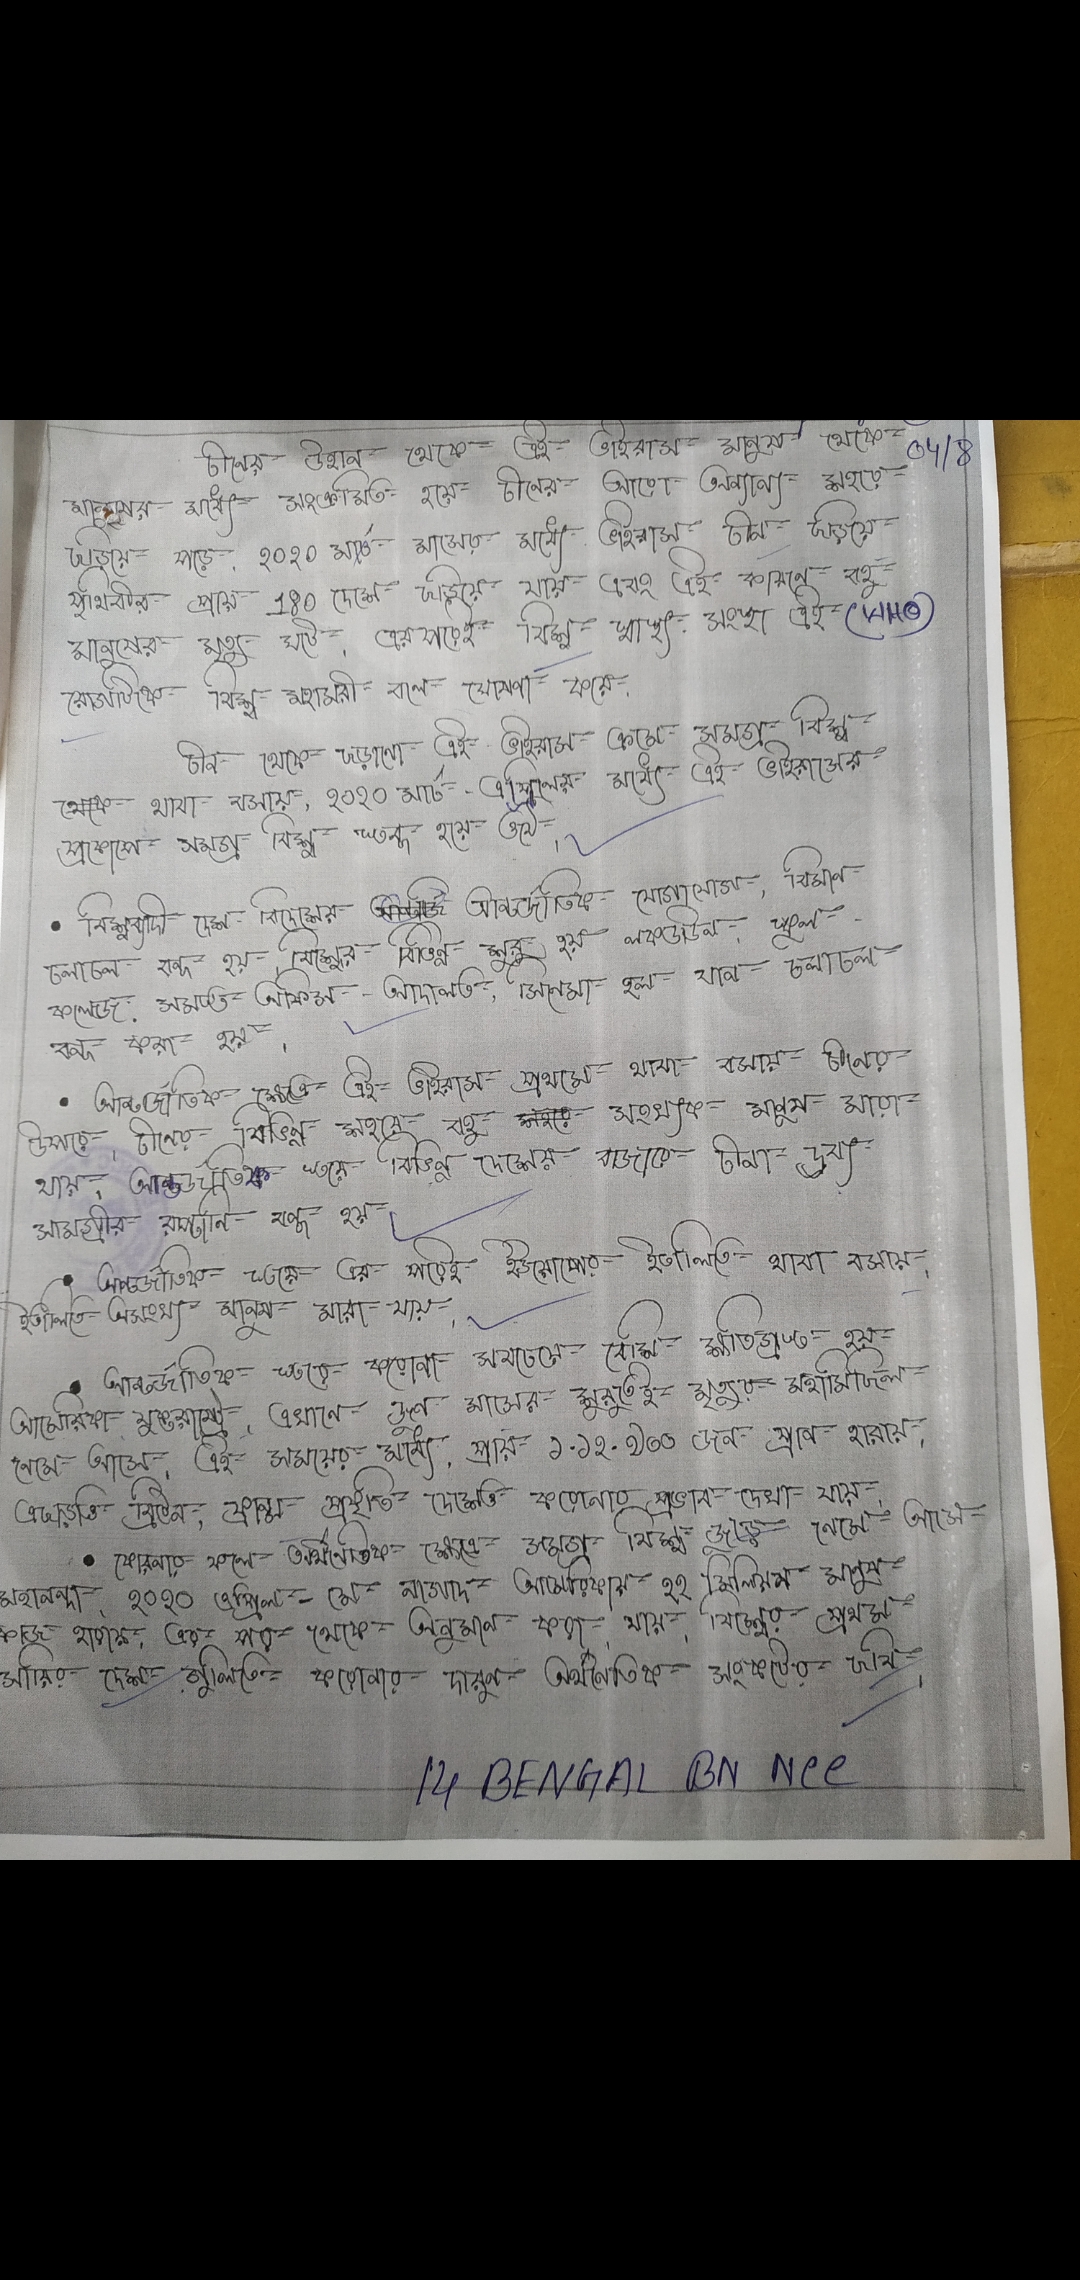 04/8
চীনের উহান থেকে এই ভাইরাস মানুষ থেকে
মানুষের মধ্যে সংক্রামিত হয়ে চীনের আরো অন্যান্য শহরে
ছড়িয়ে পড়ে, ২০২০ মার্চ মাসের মধ্যে ভাইরাস চীন ছড়িয়ে
পৃথিবীর প্রায় 180 দেশে ছড়িয়ে যায় এবং এই কারণে বহু
মানুষের মৃত্যু ঘটে, এরপরেই বিশ্ব স্বাস্থ্য সংস্থা এই (WHO)
রোগটিকে বিশ্ব মহামরী বলে ঘোষণা করে,
চীন থেকে ছড়ানো এই ভাইরাস ক্রমে সমগ্র বিশ্ব
থেকে থাবা বসায়, ২০২০ মার্চ - এপ্রিলের মধ্যে এই ভাইরাসের
প্রকোপে সমগ্র বিশ্ব স্তব্ধ হয়ে ওঠে,
• বিশ্বব্যাদী দেশ বিদেশের আন্তর্জাতিক যোগাযোগ, বিমান
চলাচল বন্দ হয়, বিশ্বের বিভিন্ন শুরু হয় লকডাউন, স্কুল -
কলেজ, সমস্ত অফিস - আদালত, সিনেমা হল যান চলাচল
বন্দ করা হয়,
• আন্তর্জাতিক ক্ষেত্রে এই ভাইরাস প্রথমে থাবা বসায় চীনের
উপরে, চীনের বিভিন্ন শহরে বহু সংখ্যক মানুষ মারা
যায়, আন্তর্জাতিক স্তরে বিভিন্ন দেশের বাজারে চীনা দ্রব্য
সামগ্রীর রপ্তানি বন্ধ হয়
• আন্তর্জাতিক স্তরে এর পরেই ইউরোপের ইতালিতে থাবা বসায়,
ইতালিতে অসংখ্য মানুষ মারা যায়,
• আন্তর্জাতিক স্তরে করোনা সবচেয়ে বেশি ক্ষতিগ্রস্ত হয়
আমেরিকা যুক্তরাষ্ট্রে, এখানে জুন মাসের শুরুতেই মৃত্যুর মহামিছিল
নেমে আসে, এই সময়ের মধ্যে, প্রায় জন প্রান হারায়,
এছাড়াও ব্রিটেন, ফ্রান্স প্রভৃতি দেশেও করোনার প্রভাব দেখা যায়,
• করোনার ফলে অর্থনৈতিক ক্ষেত্রে সমগ্র বিশ্ব জুড়ে নেমে আসে
মহামন্দা, ২০২০ এপ্রিল - মে নাগাদ আমেরিকায় ২২ মিলিয়ন মানুষ
কাজ হারায়, এর পর থেকে অনুমান করা যায়, বিশ্বের প্রথম
সারির দেশ গুলিতে করোনার দারুন অর্থনৈতিক সংকটের ছবি,
14 BENGAL BN NCC